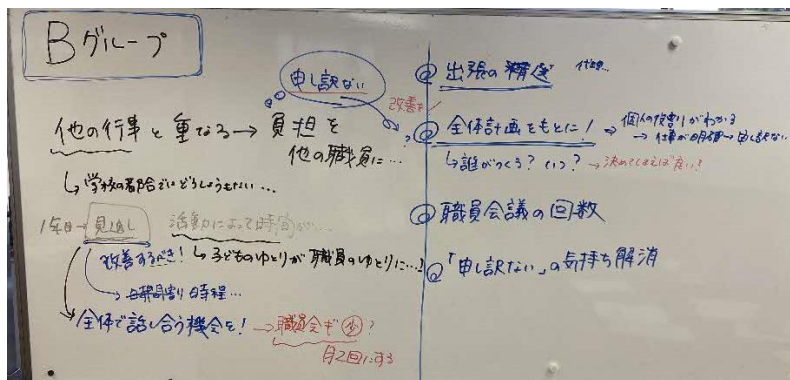 Bグループ
申し訳ない
他の行事と重なる→負担を
他の職員に…
↳学校の都合ではどうしようもない…
1年目→見直し 活動によって時間が…
改善するべき! ↳子どものゆとりが職員のゆとりに…
→日課 時間割 時程…
全体で話し合う機会を! →職員会ギ 少?
月2回にする
@ 出張の精度
改善を
@ 全体計画をもとに! ⇒ 個人の役割りがわかる
→ 仕事が明確→申し訳ない
↳誰がつくる? いつ? →決めてしまえば良い!
@ 職員会議の回数
@ 「申し訳ない」の気持ち解消